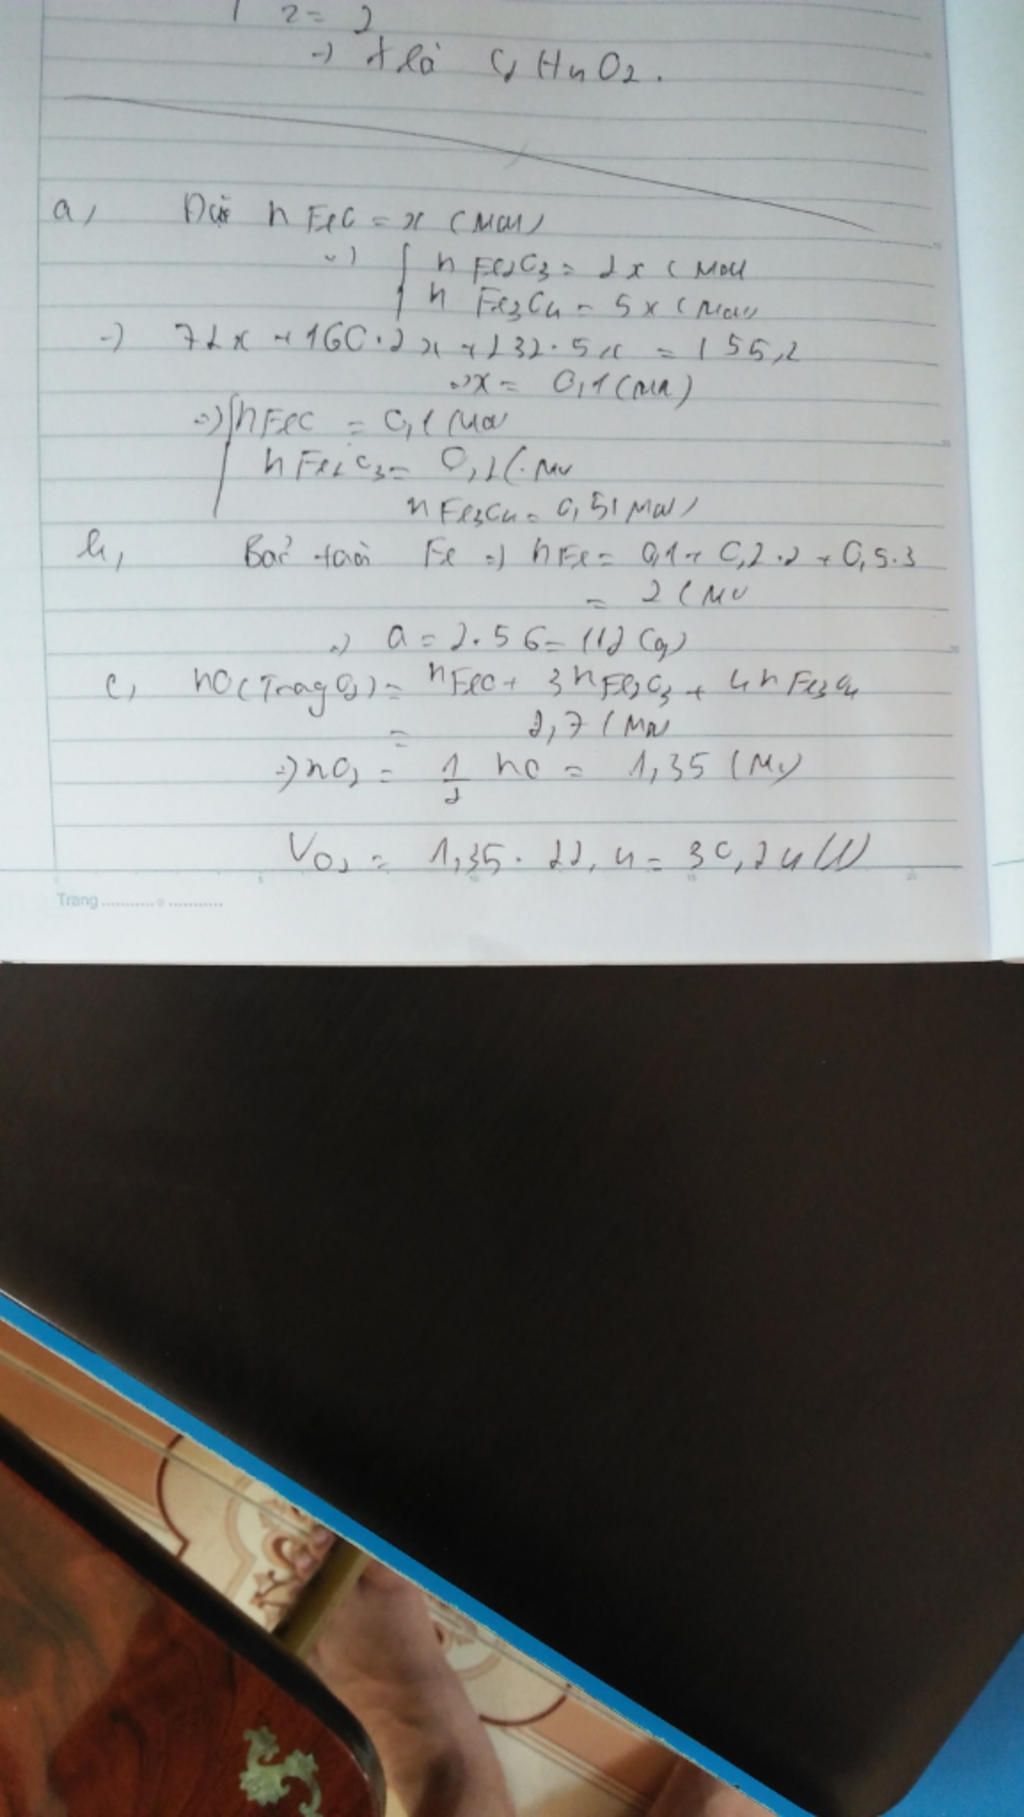 z = 2
→ X là C2H4O2.
a, Đặt nFeO = x (mol)
→ { nFe2O3 = 2x (mol)
nFe3O4 = 5x (mol)
→ 72x + 160.2x + 232.5x = 155,2
→ x = 0,1 (mol)
→ { nFeO = 0,1 (mol
nFe2O3 = 0,2 (mol
nFe3O4 = 0,5 (mol)
b, Bảo toàn Fe → nFe = 0,1 + 0,2.2 + 0,5.3
= 2 (mol
→ a = 2.56 = 112 (g)
c, nO (trong O2) = nFeO + 3nFe2O3 + 4nFe3O4
= 2,7 (mol
→ nO2 = 1/2 nO = 1,35 (mol)
VO2 = 1,35 . 22,4 = 30,24 (l)
Trang